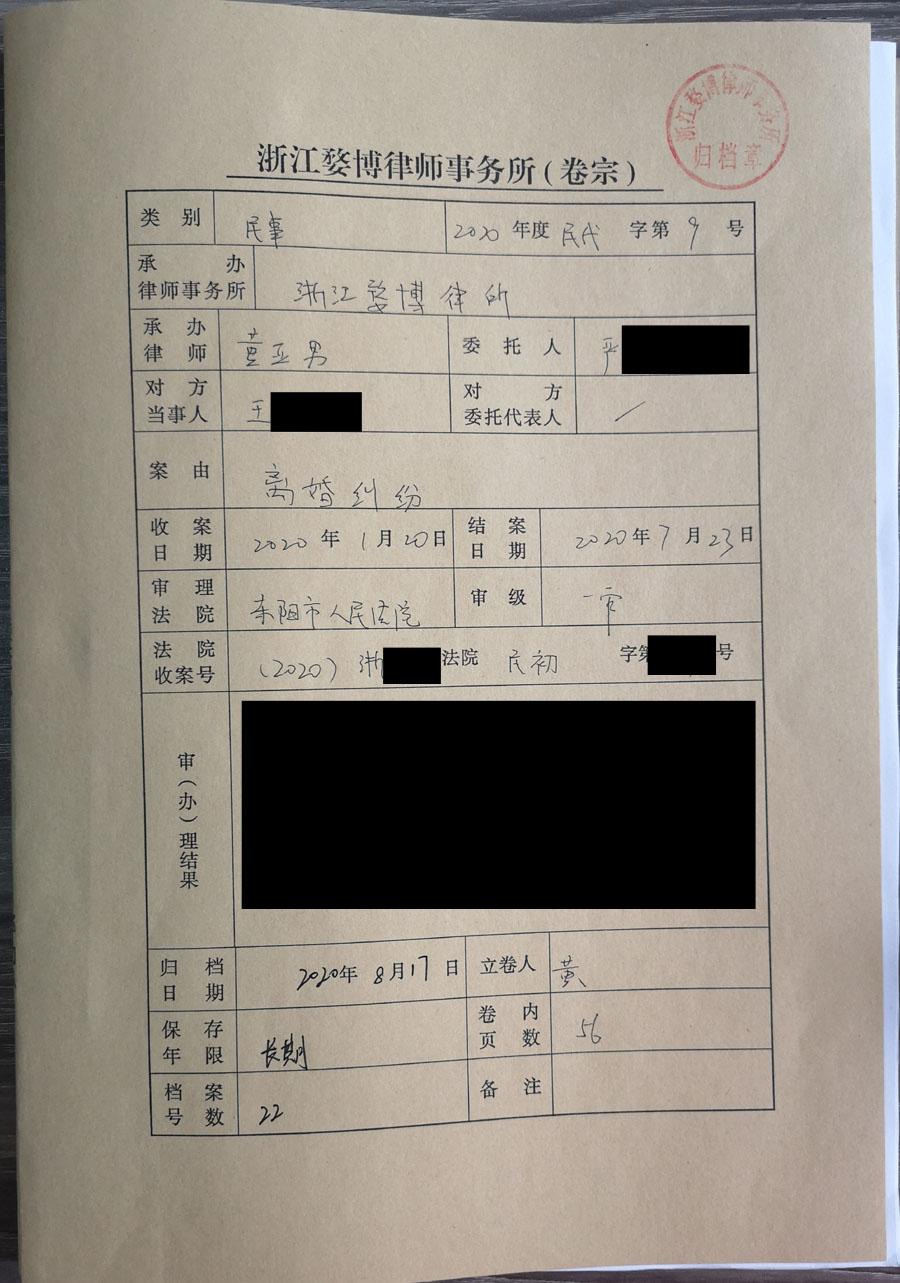 浙江婺博律师事务所
归档章
浙江婺博律师事务所(卷宗)
类 别 民事 2020 年度 民代 字第 9 号
承 办
律师事务所 浙江婺博律所
承 办
律 师 董亚男 委 托 人 严
对 方
当事人 王 对 方
委托代表人 /
案 由 离婚纠纷
收 案
日 期 2020 年 1 月 20 日 结 案
日 期 2020 年 7 月 23 日
审 理
法 院 东阳市人民法院 审 级 一审
法 院
收案号 (2020) 浙 法院 民初 字第 号
审(办)理结果
归 档
日 期 2020 年 8 月 17 日 立卷人 黄
保 存
年 限 长期 卷 内
页 数 56
档 案
号 数 22 备 注